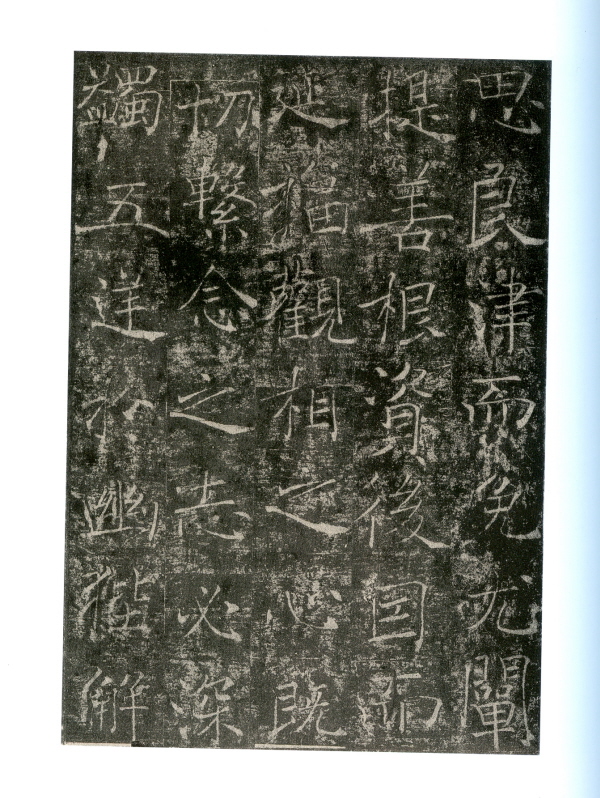 思良津而免尤闡
提善根資後因而
延福觀相之心既
切繫念之志必深
蠲五逆於幽狴解